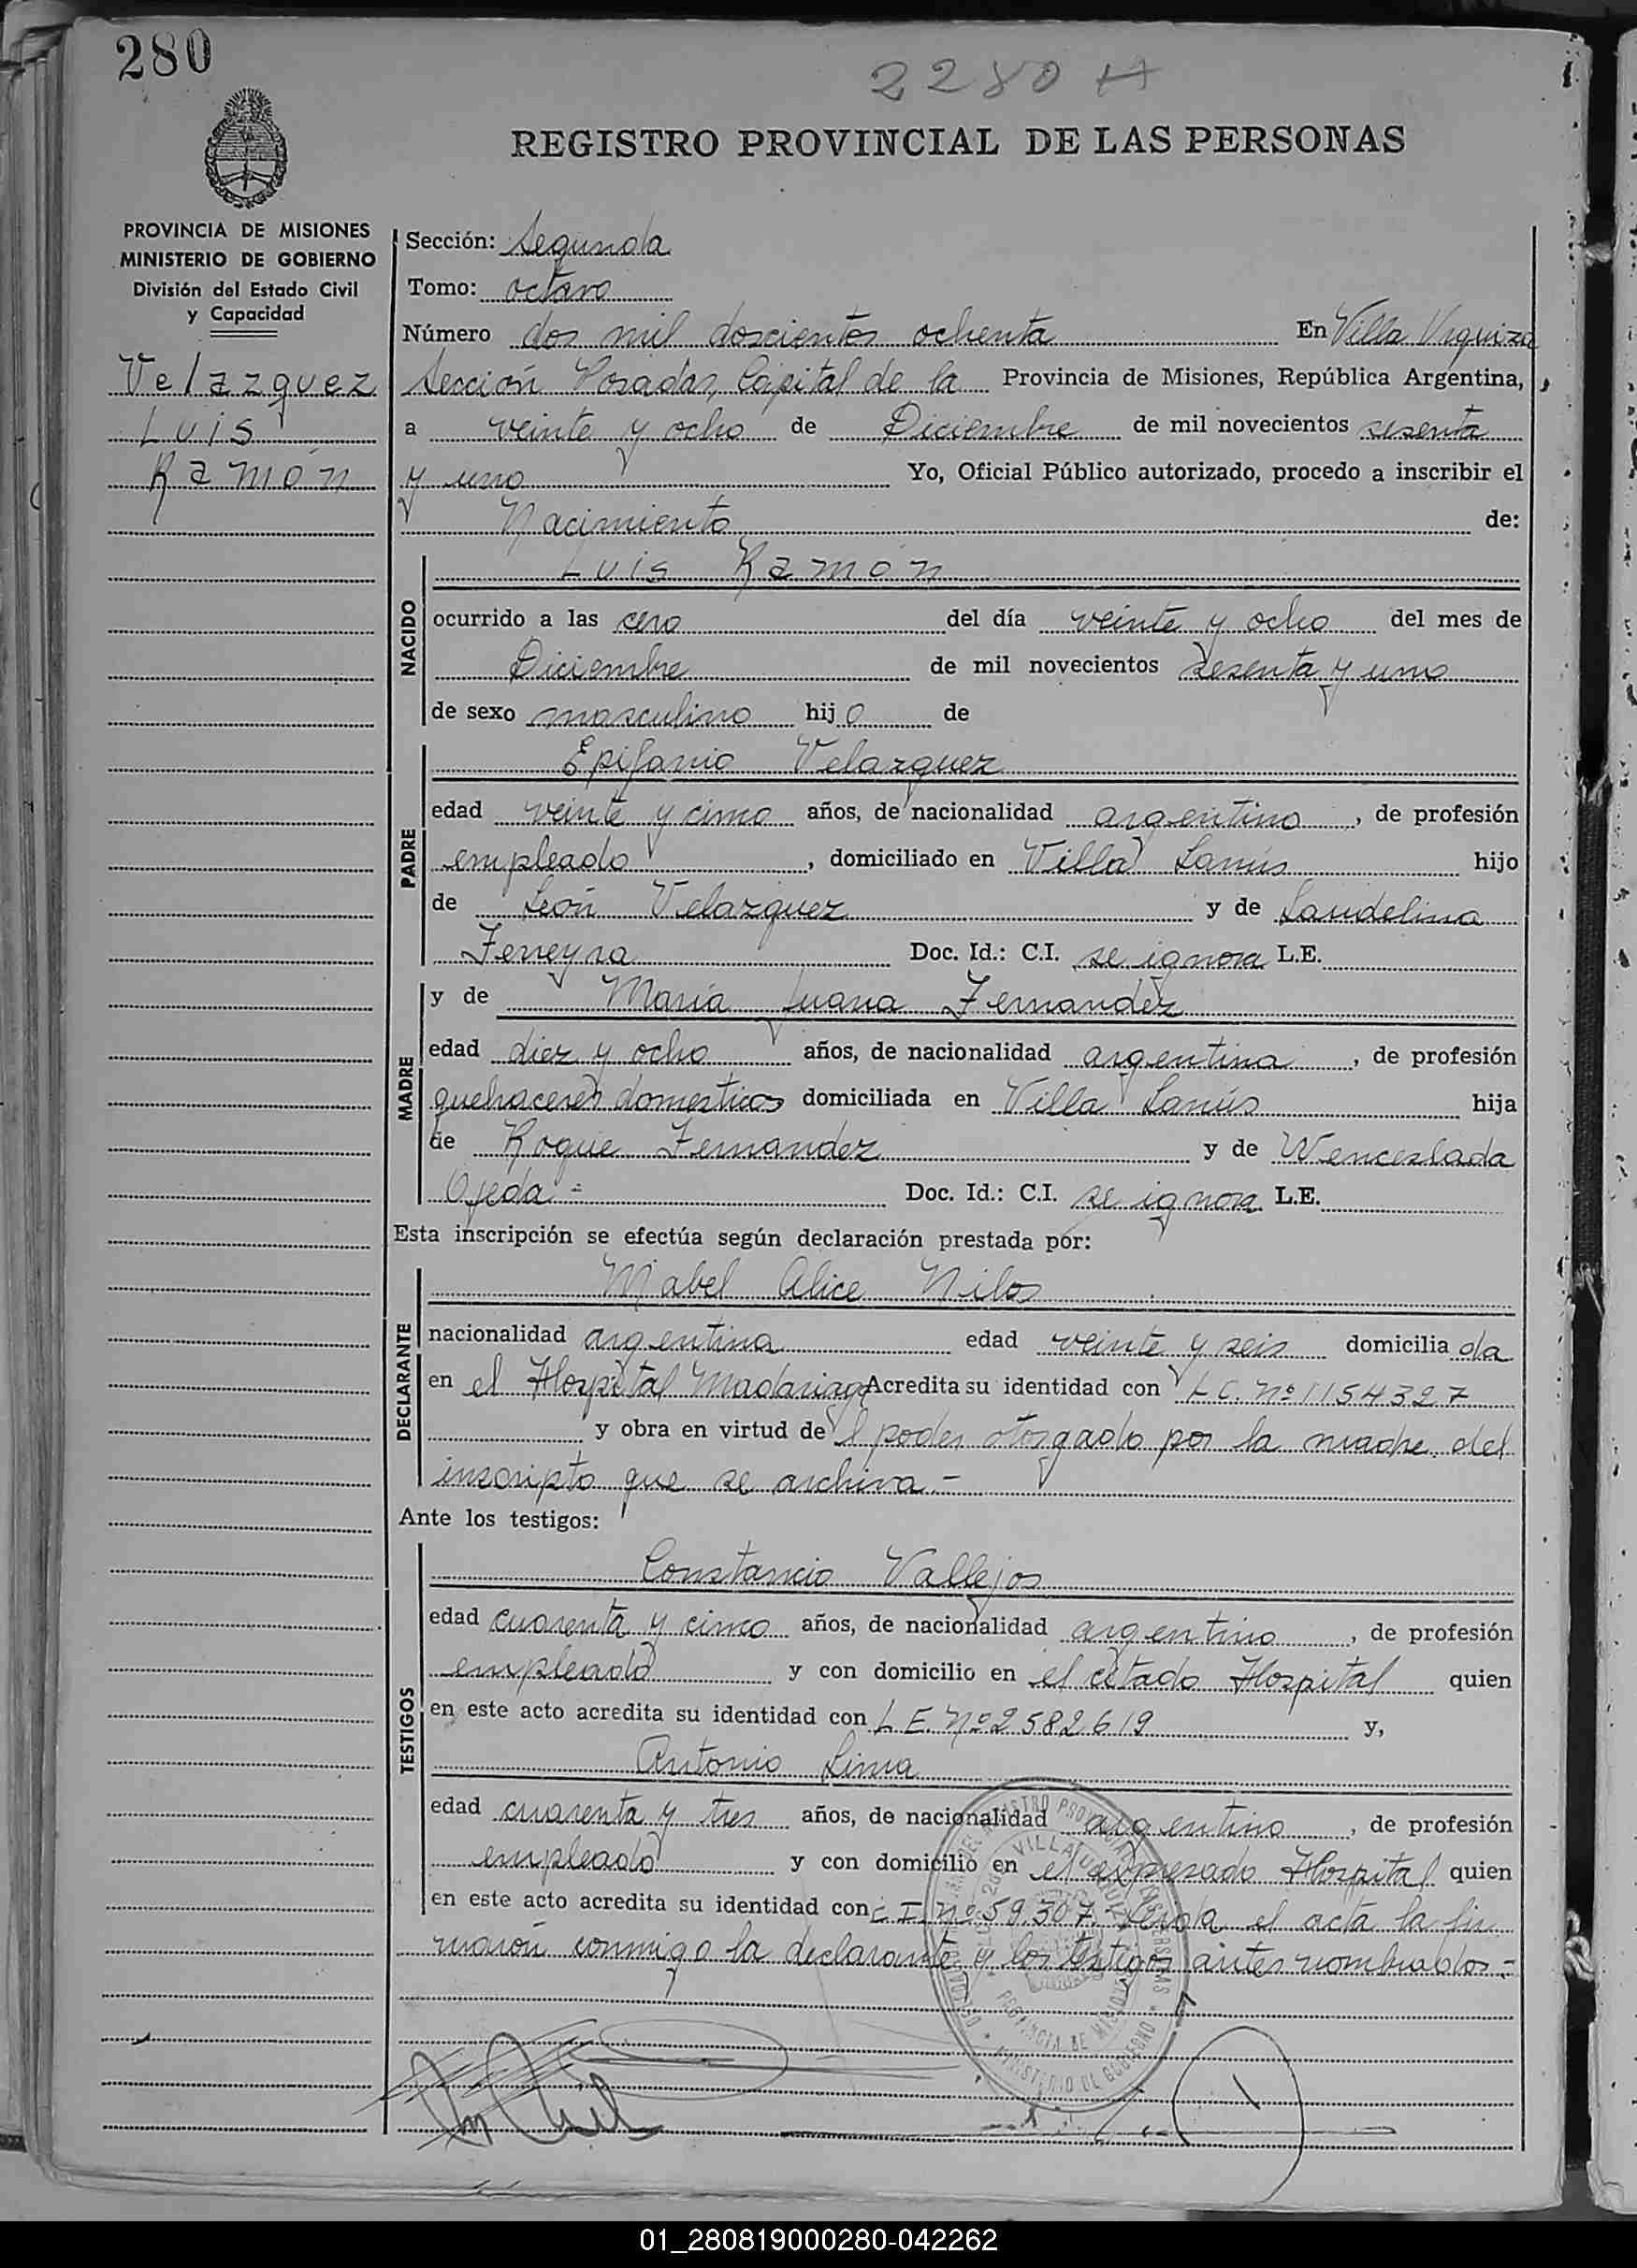 280
2280 H
REGISTRO PROVINCIAL DE LAS PERSONAS
PROVINCIA DE MISIONES
MINISTERIO DE GOBIERNO
División del Estado Civil
y Capacidad
Velazquez
Luis
Ramón
Sección: Segunda
Tomo: octavo
Número dos mil doscientos ochenta En Villa Urquiza
Sección Posadas, Capital de la Provincia de Misiones, República Argentina,
a veinte y ocho de Diciembre de mil novecientos sesenta
y uno Yo, Oficial Público autorizado, procedo a inscribir el
Nacimiento de:
NACIDO
Luis Ramón
ocurrido a las cero del día veinte y ocho del mes de
Diciembre de mil novecientos sesenta y uno
de sexo masculino hijo de
PADRE
Epifanio Velazquez
edad veinte y cinco años, de nacionalidad argentino, de profesión
empleado, domiciliado en Villa Lanús hijo
de León Velazquez y de Laudelina
Ferreyra Doc. Id.: C.I. se ignora L.E.
MADRE
y de María Juana Fernandez
edad diez y ocho años, de nacionalidad argentina, de profesión
quehaceres domesticos domiciliada en Villa Lanús hija
de Roque Fernandez y de Wenceslada
Ojeda - Doc. Id.: C.I. se ignora L.E.
Esta inscripción se efectúa según declaración prestada por:
DECLARANTE
Mabel Alice Nilos
nacionalidad argentina edad veinte y seis domiciliada
en el Hospital Madariaga Acredita su identidad con L C. Nº 1154327
y obra en virtud del poder otorgado por la madre del
inscripto que se archiva.-
Ante los testigos:
TESTIGOS
Constancio Vallejos
edad cuarenta y cinco años, de nacionalidad argentino, de profesión
empleado y con domicilio en el citado Hospital quien
en este acto acredita su identidad con L E. Nº 2582619 y,
Antonio Lima
edad cuarenta y tres años, de nacionalidad argentino, de profesión
empleado y con domicilio en el expresado Hospital quien
en este acto acredita su identidad con C I. Nº 59.307. Leida el acta la fir
maron conmigo la declarante y los testigos antes nombrados.-
01_280819000280-042262